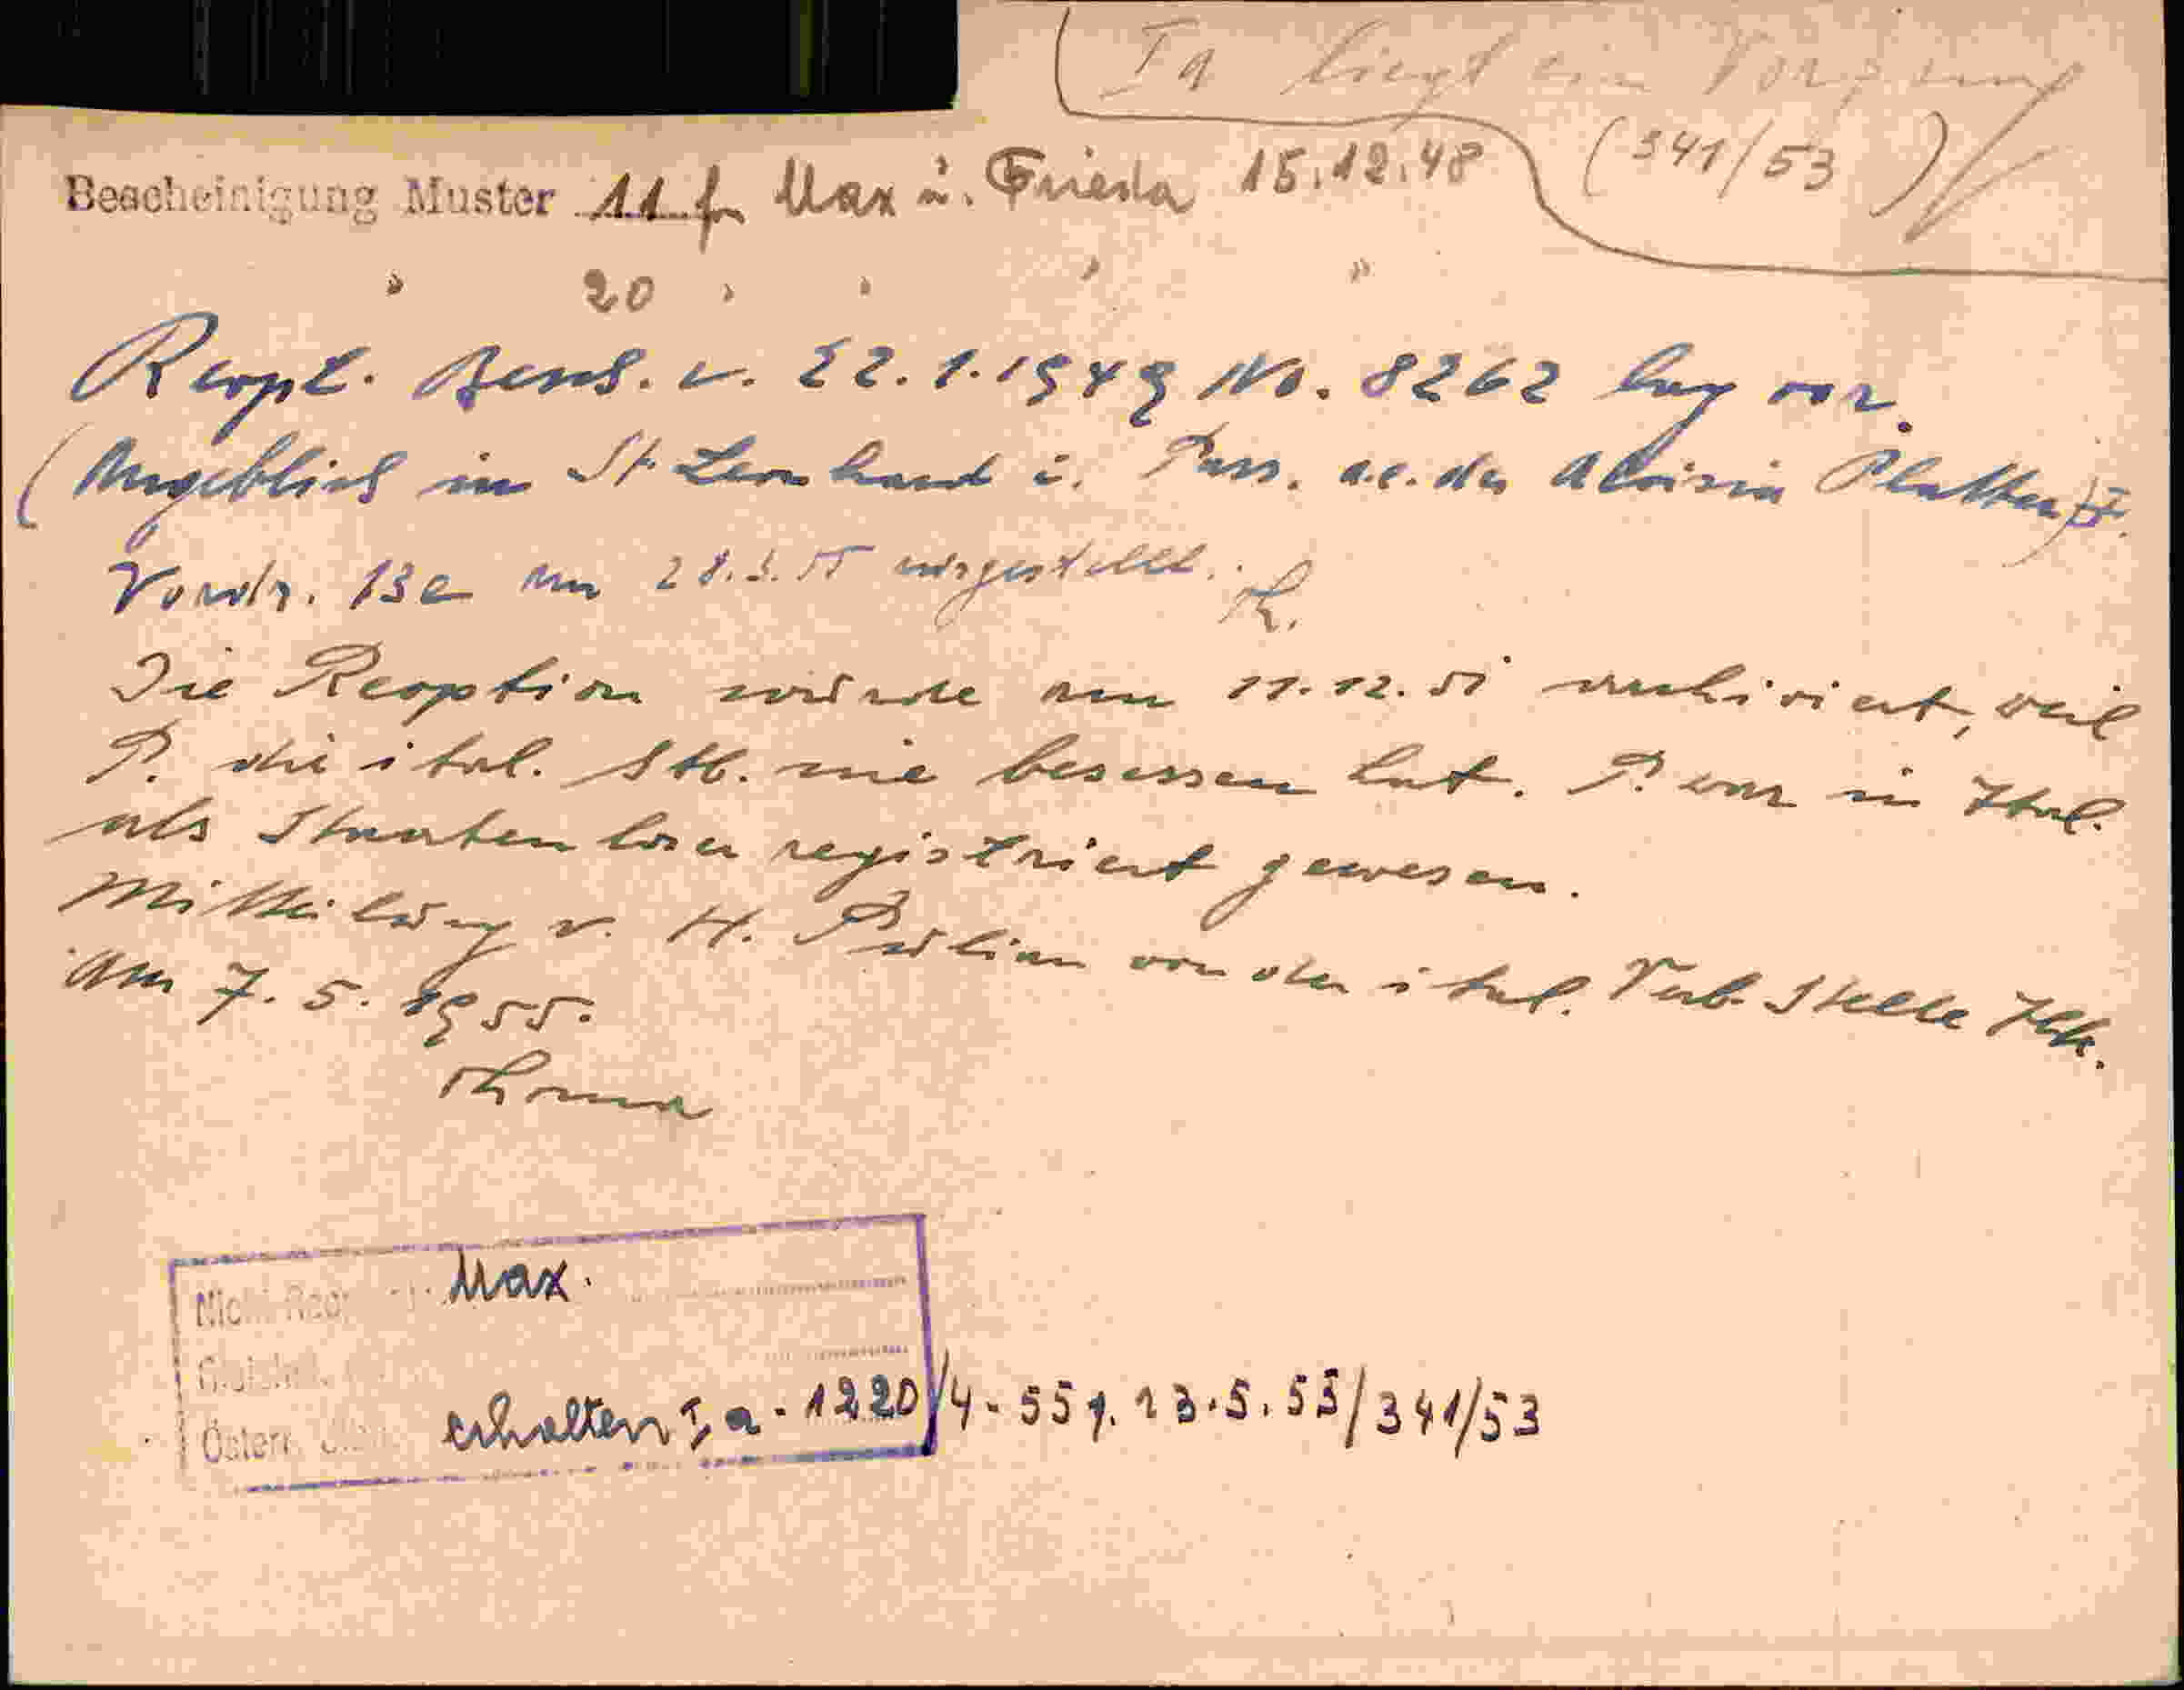 Ia liegt ein Vorgang
(341/53)
Bescheinigung Muster 11 f. Max u. Frieda 15.12.48
" 20 " " " "
Reopt. Besch. v. 22.1.1949 No. 8262 lag vor.
(Angeblich in St. Leonhard i. Pass. a.e. der Aloisia Platter)
Vordr. 13c am 28.3.55 ausgestellt. Th.
Die Reoption wurde am 11.12.51 archiviert, weil
P. die ital. Stb. nie besessen hat. P. war in Ital.
als Staatenloser registriert gewesen.
Mitteilung v. H. von der ital. Verb. Stelle Ibk.
am 7.5.1955.
Thoma
Max.
erhalten I a - 1220/4-55 13.5.55/341/53